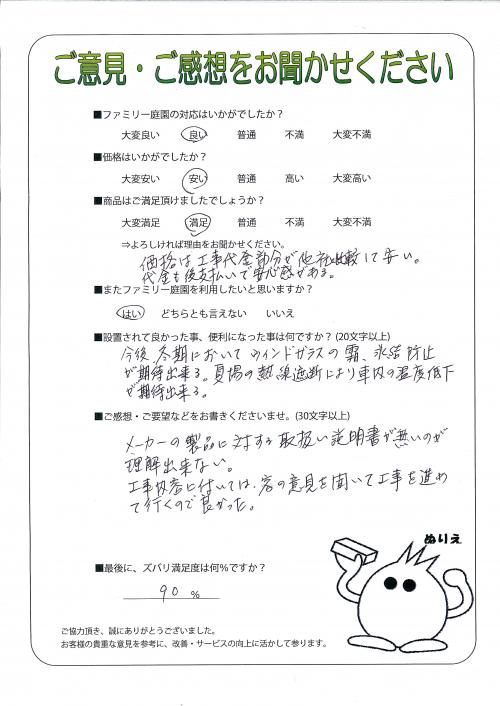 ご意見・ご感想をお聞かせください
■ファミリー庭園の対応はいかがでしたか？
大変良い 良い 普通 不満 大変不満
■価格はいかがでしたか？
大変安い 安い 普通 高い 大変高い
■商品はご満足頂けましたでしょうか？
大変満足 満足 普通 不満 大変不満
⇒よろしければ理由をお聞かせください。
価格は工事代金部分が他社比較して安い。
代金も後支払いで安心感がある。
■またファミリー庭園を利用したいと思いますか？
はい どちらとも言えない いいえ
■設置されて良かった事、便利になった事は何ですか？(20文字以上)
今後冬期においてウィンドガラスの霜、氷結防止
が期待出来る。夏場の熱線遮断により車内の温度低下
が期待出来る。
■ご感想・ご要望などをお書きくださいませ。(30文字以上)
メーカーの製品に対する取扱い説明書が無いのが
理解出来ない。
工事内容に付いては、客の意見を聞いて工事を進め
て行くので良かった。
ぬりえ
■最後に、ズバリ満足度は何％ですか？
90 ％
ご協力頂き、誠にありがとうございました。
お客様の貴重な意見を参考に、改善・サービスの向上に活かして参ります。